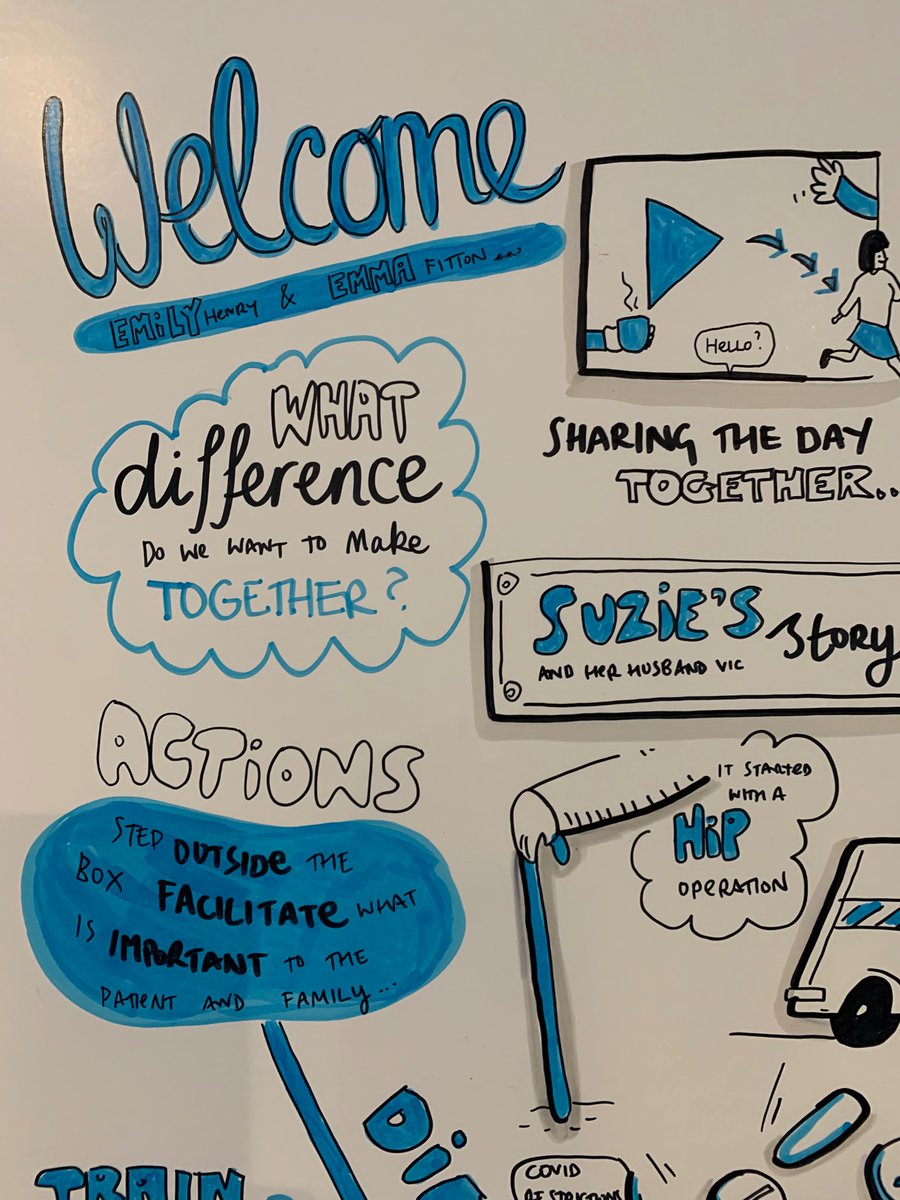 Welcome
EMILY HENRY & EMMA FITTON
WHAT
difference
DO WE WANT TO MAKE
TOGETHER?
Hello?
SHARING THE DAY
TOGETHER..
SUZIE'S Story
AND HER HUSBAND VIC
ACTIONS
STEP OUTSIDE THE
BOX FACILITATE WHAT
IS IMPORTANT TO THE
PATIENT AND FAMILY...
IT STARTED
WITH A
HIP
OPERATION
TRAIN
COVID
RESTRICTIONS